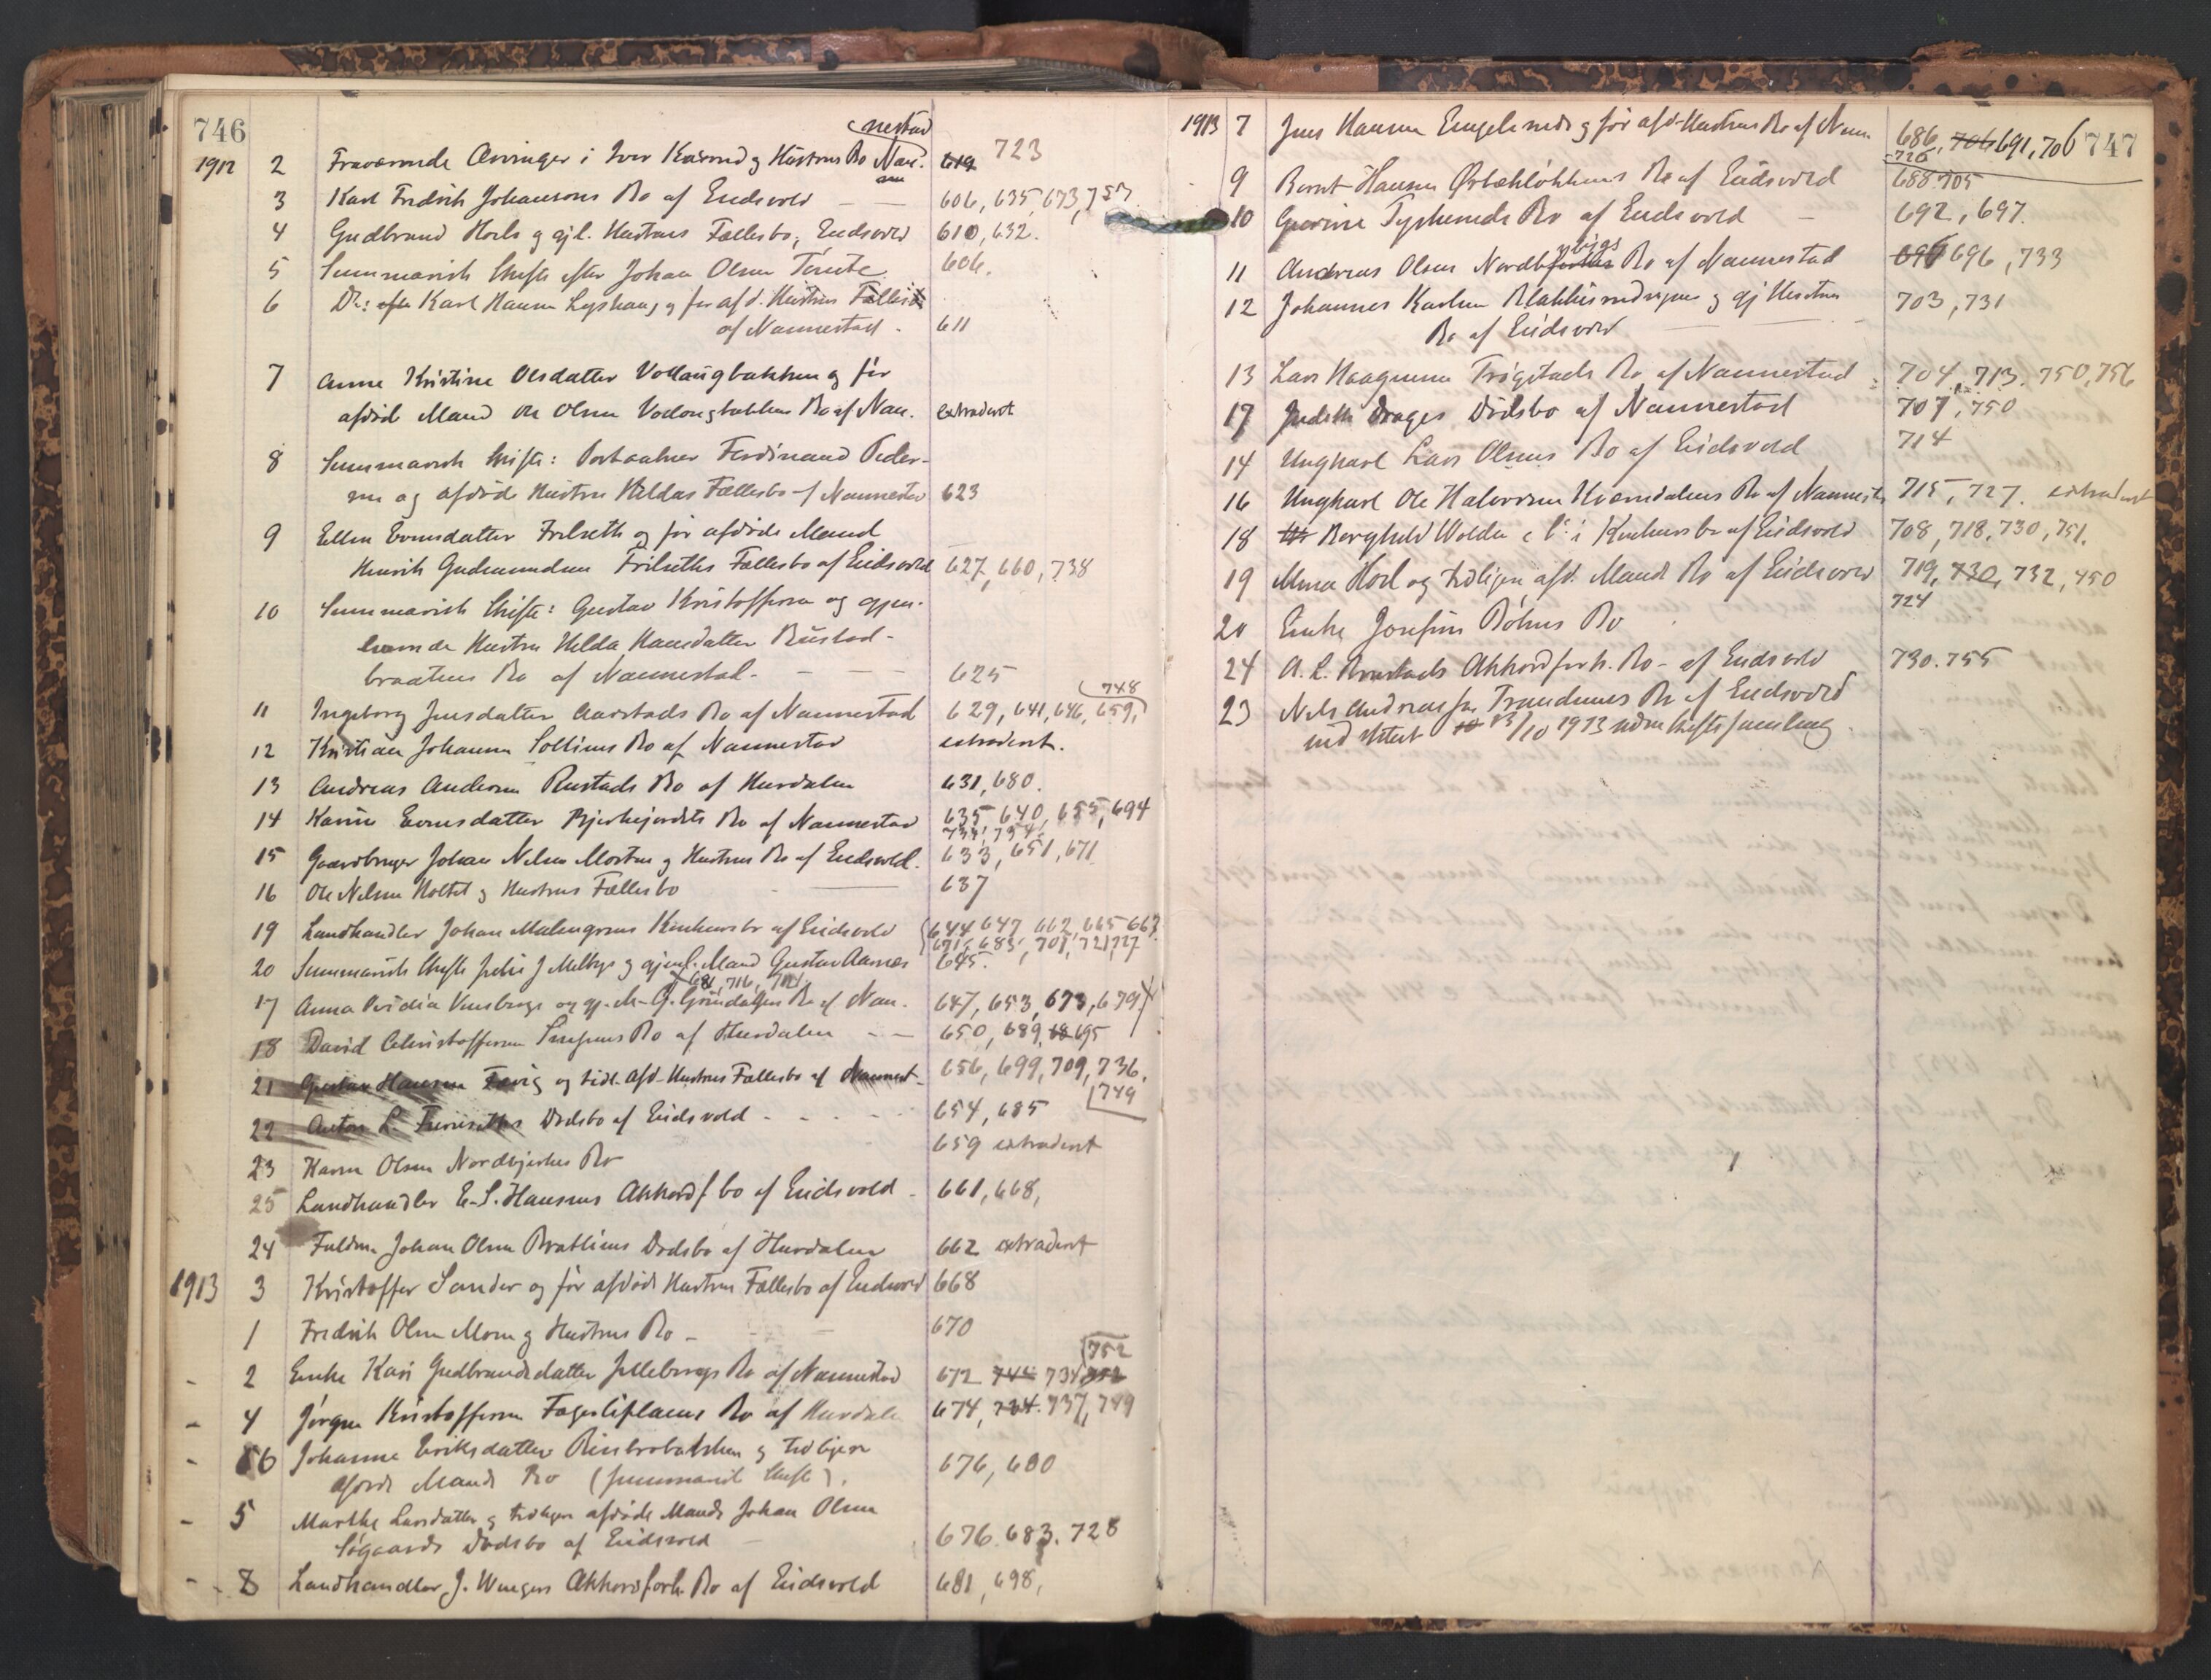 746
nestad
1912 2 Fraværende Arvinger i Iver Kaasrud og Hustrus Bo Nan. 619 723
3 Karl Fredrik Johansens Bo af Eidsvold — — 606, 635, 673, 757
4 Gudbrand Hols og gjl. Hustrus Fællesbo, Eidsvold 610, 632.
5 Summarisk Skifte efter Johan Olsen Tømte 606.
6 Do: efter Karl Hansen Lyshaug og før afd. Hustrus Fællesbo
af Nannestad - 611
7 Anne Kristine Olsdatter Vollaugbakken og før
afdød Mand Ole Olsen Vollongbakken Bo af Nan. extraderet
8 Summarisk Skifte: Ferdinand Peder-
sen og afdøde Hustru Hildas Fællesbo af Nannestad 623
9 Ellen Evensdatter Frilseth og før afdøde Mand
Henrik Gudmundsen Frilseths Fællesbo af Eidsvold 627, 660, 738
10 Summarisk Skifte: Gustav Kristoffersen og gjen-
levende Hustru Helda Hansdatter Rustad-
braatens Bo af Nannestad. — — — 625
748
11 Ingeborg Jensdatter Aarstads Bo af Nannestad 629, 641, 646, 659,
12 Kristian Johannesen Sollius Bo af Nannestad extraderet.
13 Andreas Andersen Rustads Bo af Hurdalen 631, 680.
14 Karine Evensdatter Bjerkejordets Bo af Nannestad 635 640, 655, 694
733, 734
15 Gaardbruger Johan Nilsen Morten og Hustrus Bo af Eidsvold. 633, 651, 671
16 Ole Nilsen Holtet og Hustrus Fællesbo 637
19 Landhandler Johan Malmgrens Konkursbo af Eidsvold 644 647 662, 665 667
671, 683, 701, 721, 727
20 Summarisk Skifte Julie J Melbys og gjenl. Mand Gustav Aarnes 645.
681, 716,
17 Anna Vinsbergs og gj. M. G. Grindalens Bo af Nan. 647, 653, 673, 679,
18 David Christoffersen Bo af Hurdalen - — 650, 689, 68 695
21 Gustav Hansen og tidl. afd. Hustrus Fællesbo af Nannest. 656, 699, 709, 736,
749
22 Anton L. Furuseths Dødsbo af Eidsvold - - - - 654, 685
23 Karen Olsen Nordbjerkes Bo 659 extraderet
25 Landhandler E. S. Hansens Akkordf. bo af Eidsvold - 661, 668,
24 Johan Olsen Bratlius Dødsbo af Hurdalen 662 extraderet
1913 3 Kristoffer Sander og før afdøde Hustrus Fællesbo af Eidsvold 668
1 Fredrik Olsen Moen og Hustrus Bo - 670
752
- 2 Enke Kari Gudbrandsdatter Jelleborgs Bo af Nannestad 672 744 734 752
- 4 Jørgen Kristoffersen Fagerliplacens Bo af Hurdalen 674, 734. 737, 749
- 6 Johanne Eriksdatter og tidligere
afdøde Mands Bo (summarisk Skifte). 676, 680
- 5 Marthe Larsdatter og tidligere afdøde Mands Johan Olsen
Søgaards Dødsbo af Eidsvold 676. 683. 728
- 8 Landhandler J. Wengers Akkordforh. Bo af Eidsvold 681, 698,
747
1913 7 Jens Hansen Engelsruds og før afd. Hustrus Bo af Nann 686, 706 691, 706
726
9 Bernt Hansen Ørbækløkkens Bo af Eidsvold 688. 705
10 Gurine Tyskeruds Bo af Eidsvold — 692, 697.
11 Andreas Olsen Nordbybys Bo af Nannestad 696 696, 733
12 Johannes Karlsen og gj Hustrus 703, 731
Bo af Eidsvold
13 Lars Haagensen Trøgstads Bo af Nannestad 704, 713, 750, 756
17 Judith Drages Dødsbo af Nannestad 707, 750
14 Ungkarl Lars Olsens Bo af Eidsvold 714
16 Ungkarl Ole Halvorsen Kværndalens Bo af Nannestad 715, 727. extraderet
18 Borghild Wolden & Co i Konkursbo af Eidsvold 708, 718, 730, 751.
19 Mina Hoel og tidligere afd. Mands Bo af Eidsvold 719, 730, 732, 750
724
20 Enke Josefine Bøhns Bo
24 A. L. Akkordforh. Bo - af Eidsvold 730. 755
23 Nils Andreassen Trandemes Bo af Eidsvold
ind sluttet 13/10 1913 uden Skiftesamling.